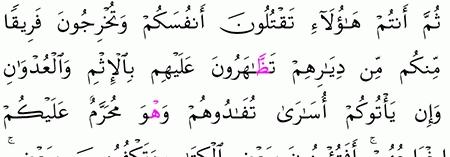 ثُمَّ أَنتُمْ هَـٰٓؤُلَآءِ تَقْتُلُونَ أَنفُسَكُمْ وَتُخْرِجُونَ فَرِيقًا
مِّنكُم مِّن دِيَـٰرِهِمْ تَظَّـٰهَرُونَ عَلَيْهِم بِٱلْإِثْمِ وَٱلْعُدْوَٰنِ
وَإِن يَأْتُوكُمْ أُسَـٰرَىٰ تُفَـٰدُوهُمْ وَهْوَ مُحَرَّمٌ عَلَيْكُمْ